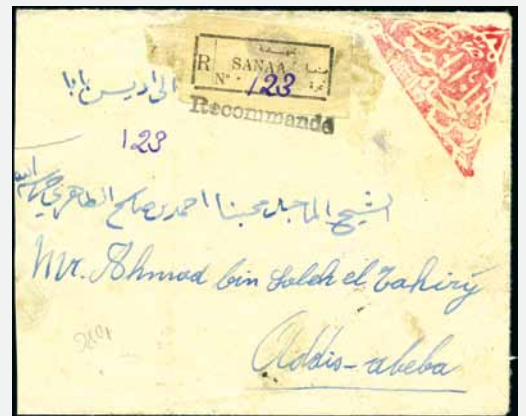 مسجلة
R SANAA صنعا
Nº 123 نمرة
Recommandé
الى اديس بابا
123
الشيخ الماجد محبنا احمد بن صالح الطاهري
Mr. Ahmad bin Saleh el Tahiry
Addis-abeba